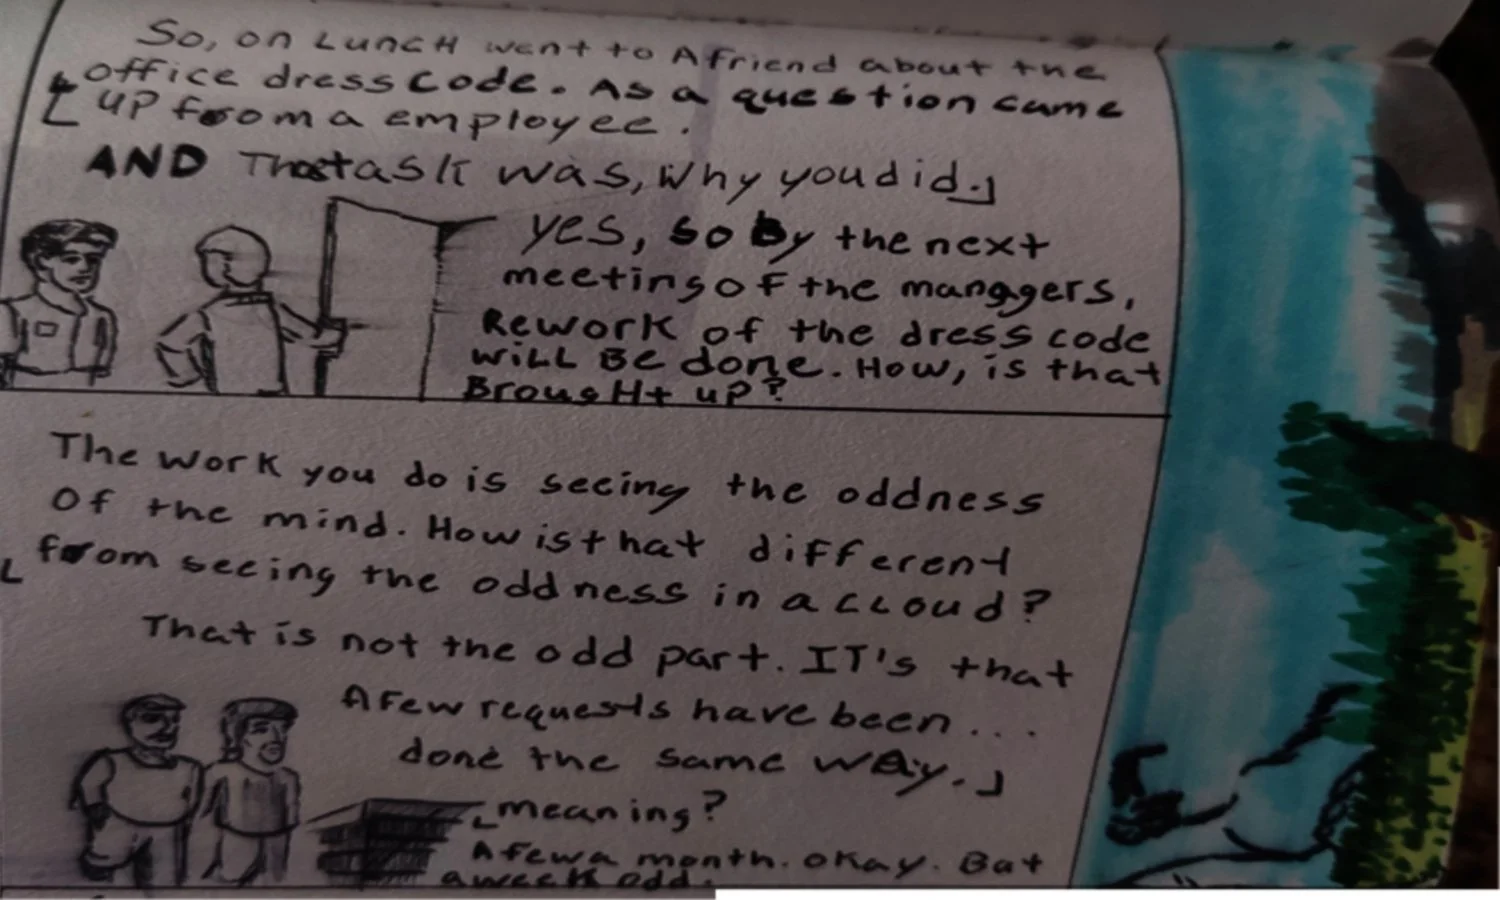 So, on Lunch went to A friend about the
office dress code. As a question came
up from a employee.
AND That ask was, Why you did.
yes, so By the next
meeting of the managers,
Rework of the dress code
WiLL BE done. How, is that
Brought up?
The work you do is seeing the oddness
Of the mind. How is that different
from seeing the oddness in a cloud?
That is not the odd part. IT's that
A few requests have been...
done the same way.
meaning?
A few a month. okay. But
a week odd.